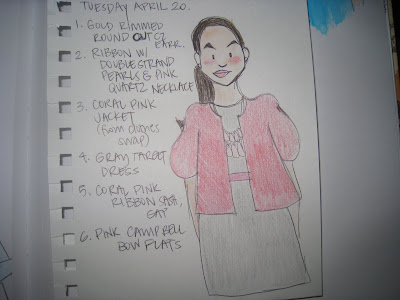 TUESDAY APRIL 20.
1. GOLD RIMMED
ROUND
EARR.
2. RIBBON W/
DOUBLE STRAND
PEARLS & PINK
QUARTZ NECKLACE
3. CORAL PINK
JACKET
(from clothes
swap)
4. GRAY TARGET
DRESS
5. CORAL PINK
RIBBON SASH,
GAP
6. PINK CAMPBELL
BOW FLATS